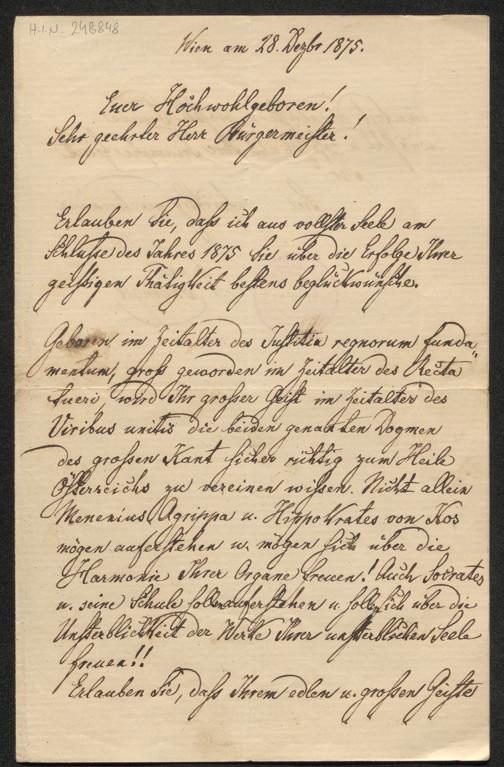 H.I.N. 248848
Wien am 28. Dezbr 1875.
Euer Hochwohlgeboren!
Sehr geehrter Herr Bürgermeister!
Erlauben Sie, daß ich aus vollster Seele am
Schlusse des Jahres 1875 Sie über die Erfolge Ihrer
geistigen Thätigkeit bestens beglückwünsche.
Geboren im Zeitalter des Justitia regnorum funda"
mentum, groß geworden im Zeitalter des Recta
tueri, wird Ihr grosser Geist im Zeitalter des
Viribus unitis die beiden genannten Dogmen
des grossen Kant sicher richtig zum Heile
Österreichs zu vereinen wissen. Nicht allein
Menenius Agrippa u. Hippokrates von Kos
mögen auferstehen u. mögen sich über die
Harmonie Ihrer Organe freuen! Auch Socrates
u. seine Schule sollen auferstehen u. sollen sich über die
Unsterblichkeit der Werke Ihrer unsterblichen Seele
freuen!!
Erlauben Sie, daß Ihrem edlen u. grossen Geiste